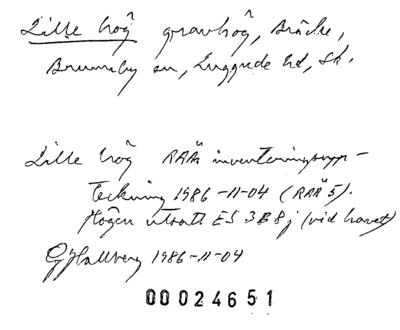 Lille hög gravhög, Bräcke,
Brunnby sn, Luggude hd, Sk.
Lille hög RAÄ inventeringsupp-
teckning 1986-11-04 (RAÄ 5).
Högen utsatt ES 3B8j (vid havet)
GHallberg 1986-11-04
00024651